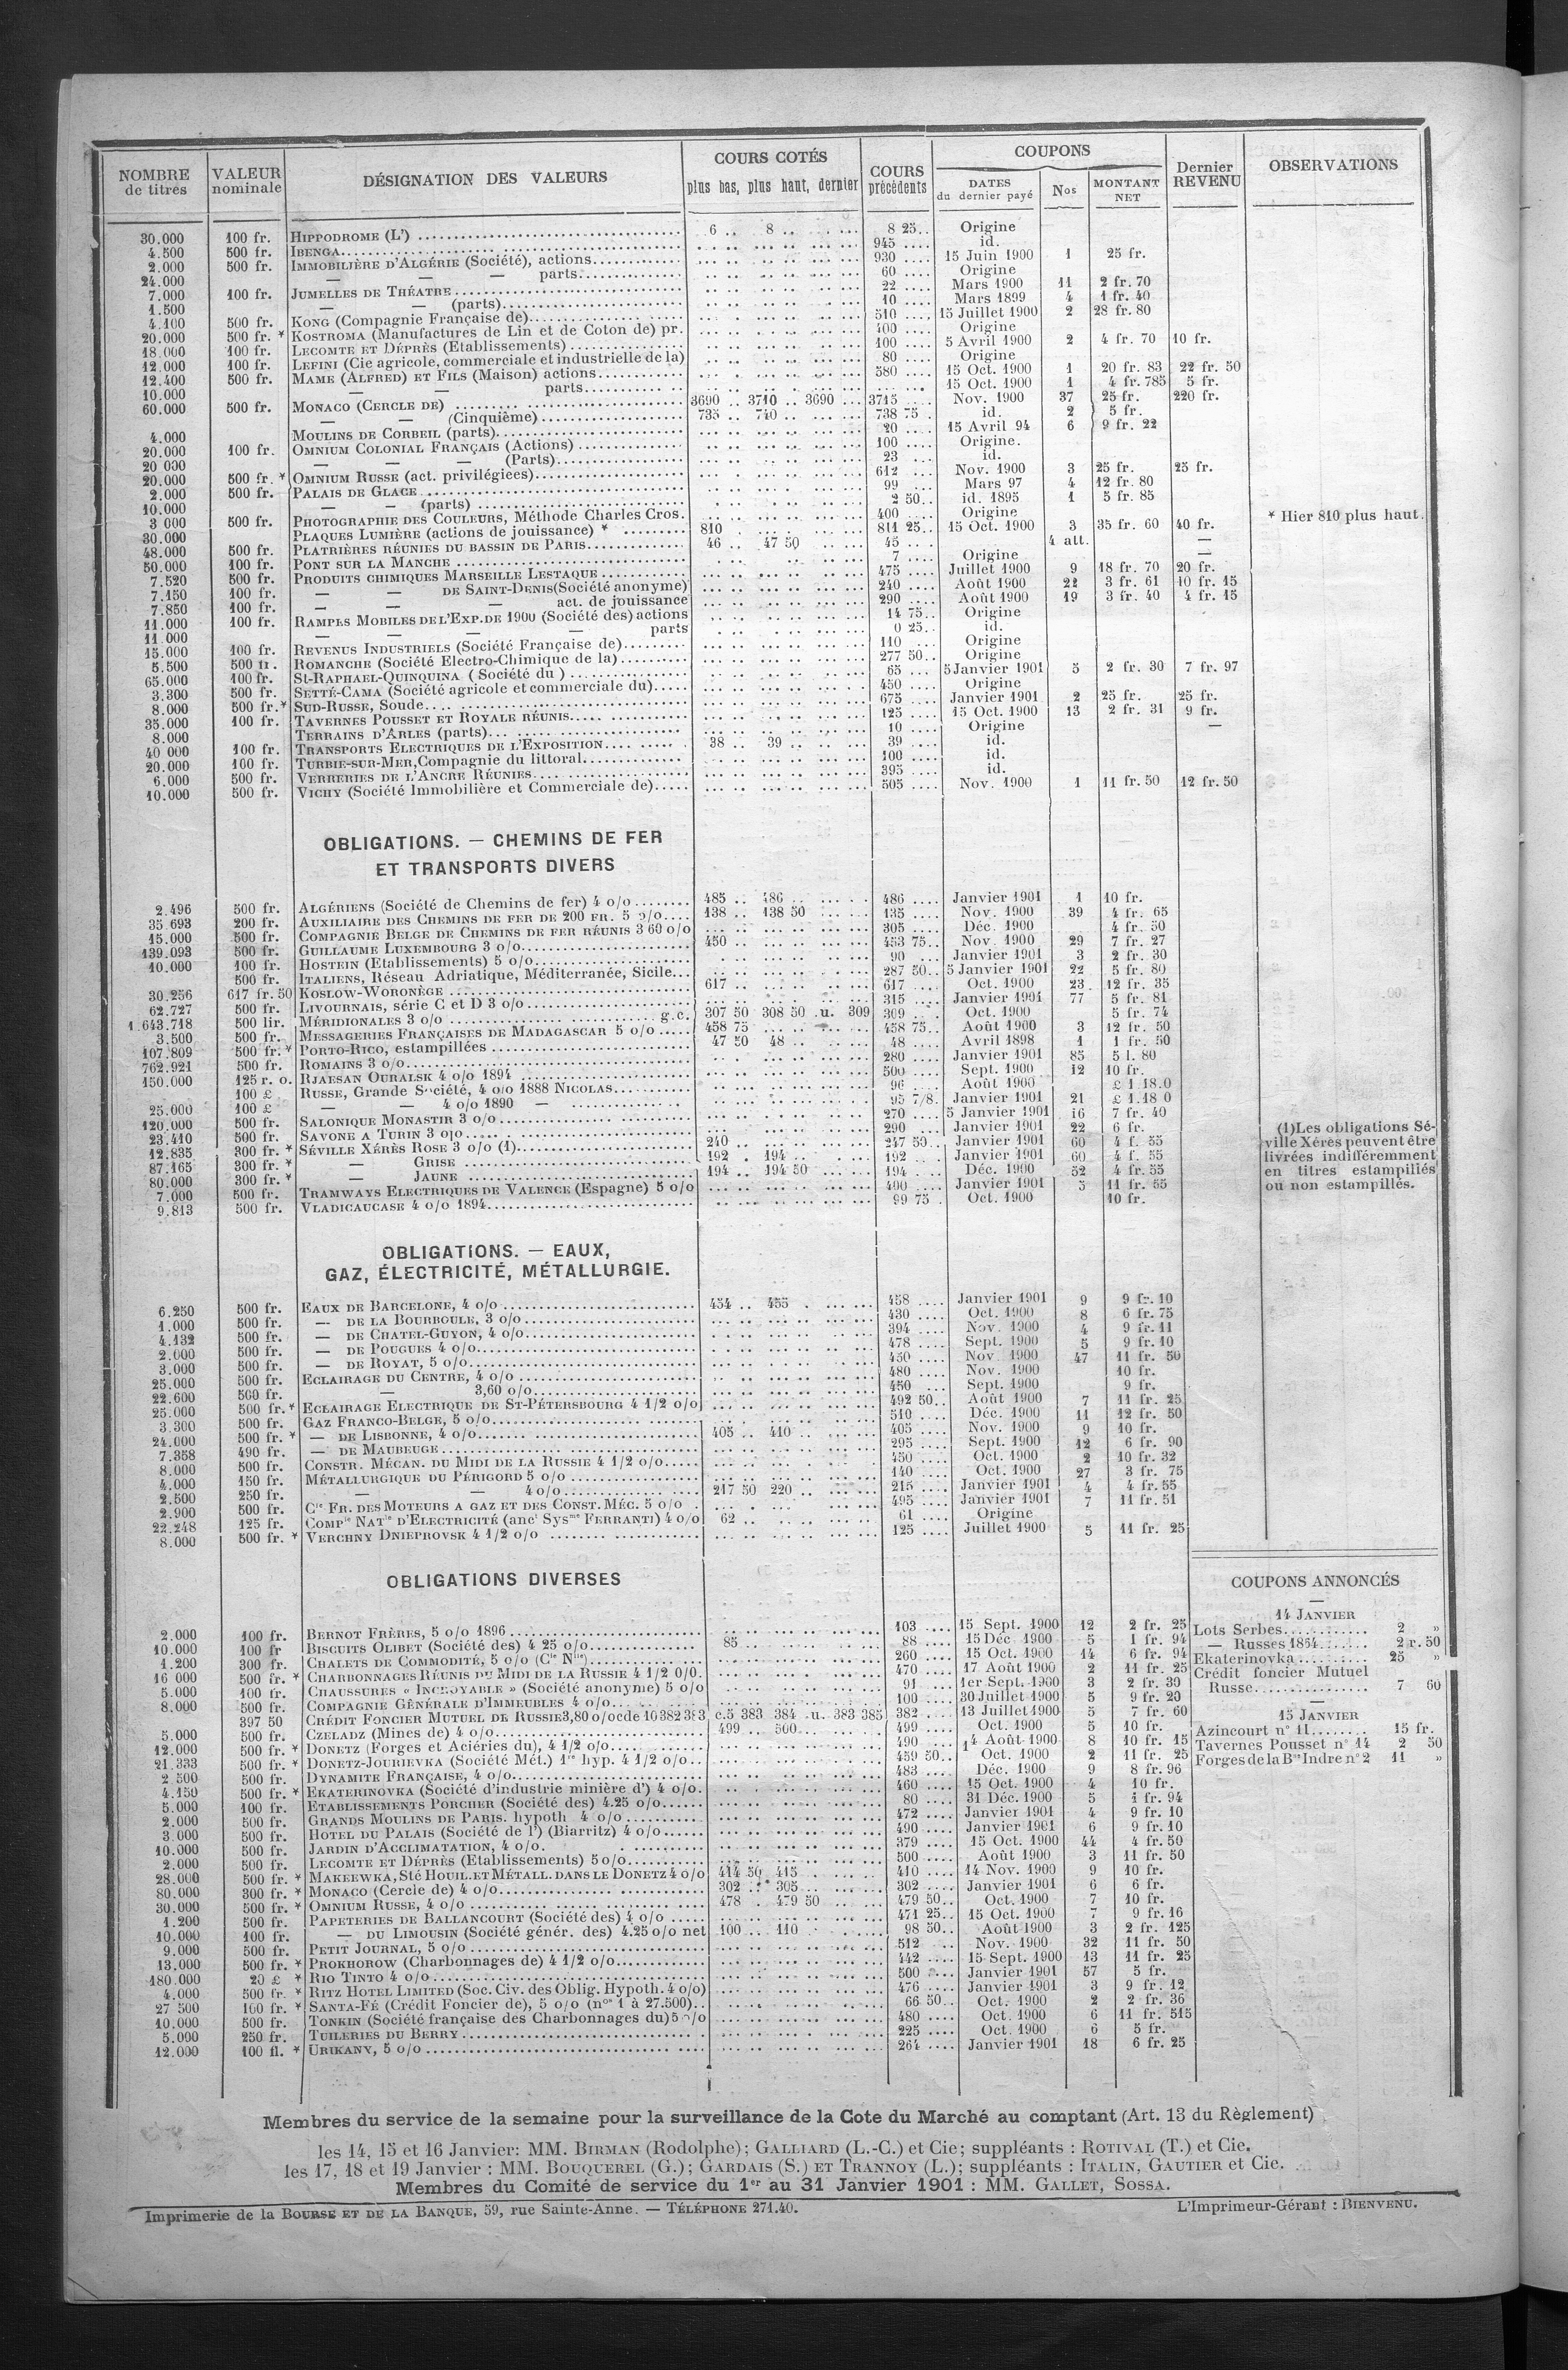 NOMBRE de titres | VALEUR nominale | DÉSIGNATION DES VALEURS | COURS COTÉS plus bas, plus haut, dernier | COURS précédents | COUPONS DATES du dernier payé | Nos | MONTANT NET | Dernier REVENU | OBSERVATIONS
30.000 100 fr. HIPPODROME (L') 6 .. 8 .. 8 25.. Origine
4.500 500 fr. IBENGA 945 .... id.
2.000 500 fr. IMMOBILIÈRE D'ALGÉRIE (Société), actions 930 .... 15 Juin 1900 1 25 fr.
24.000 — — — parts 60 .... Origine
7.000 100 fr. JUMELLES DE THÉATRE 22 .... Mars 1900 11 2 fr. 70
1.500 — — (parts) 10 .... Mars 1899 4 1 fr. 40
4.100 500 fr. KONG (Compagnie Française de) 510 .... 15 Juillet 1900 2 28 fr. 80
20.000 500 fr. * KOSTROMA (Manufactures de Lin et de Coton de) pr. 400 .... Origine
18.000 100 fr. LECOMTE ET DÉPRÈS (Etablissements) 100 .... 5 Avril 1900 2 4 fr. 70 10 fr.
12.000 100 fr. LEFINI (Cie agricole, commerciale et industrielle de la) 80 .... Origine
12.400 500 fr. MAME (ALFRED) ET FILS (Maison) actions 580 .... 15 Oct. 1900 1 20 fr. 83 22 fr. 50
10.000 — — parts 15 Oct. 1900 1 4 fr. 785 5 fr.
60.000 500 fr. MONACO (CERCLE DE) 3690 .. 3710 .. 3690 ... 3715 .... Nov. 1900 37 25 fr. 220 fr.
— — (Cinquième) 735 .. 740 .. 738 75 . id. 2 5 fr.
4.000 MOULINS DE CORBEIL (parts) 20 .... 15 Avril 94 6 9 fr. 22
20.000 100 fr. OMNIUM COLONIAL FRANÇAIS (Actions) 100 .... Origine.
20 000 — — — (Parts) 23 ... id.
20.000 500 fr. * OMNIUM RUSSE (act. privilégiees) 612 ... Nov. 1900 3 25 fr. 25 fr.
2.000 500 fr. PALAIS DE GLACE 99 ... Mars 97 4 12 fr. 80
10.000 — — (parts) 2 50.. id. 1895 1 5 fr. 85
3 000 500 fr. PHOTOGRAPHIE DES COULEURS, Méthode Charles Cros. 400 .... Origine
30.000 PLAQUES LUMIÈRE (actions de jouissance) * 810 811 25.. 15 Oct. 1900 3 35 fr. 60 40 fr. * Hier 810 plus haut.
48.000 500 fr. PLATRIÈRES RÉUNIES DU BASSIN DE PARIS 46 .. 47 50 45 ... 4 att. —
50.000 100 fr. PONT SUR LA MANCHE 7 .... Origine —
7.520 500 fr. PRODUITS CHIMIQUES MARSEILLE LESTAQUE 475 .... Juillet 1900 9 18 fr. 70 20 fr.
7.150 100 fr. — — DE SAINT-DENIS (Société anonyme) 240 .... Août 1900 22 3 fr. 61 10 fr. 15
7.850 100 fr. — — — act. de jouissance 290 .... Août 1900 19 3 fr. 40 4 fr. 15
11.000 100 fr. RAMPES MOBILES DE L'EXP. DE 1900 (Société des) actions 14 75.. Origine
11.000 — — — — parts 0 25.. id.
15.000 100 fr. REVENUS INDUSTRIELS (Société Française de) 110 .... Origine
5.500 500 fr. ROMANCHE (Société Electro-Chimique de la) 277 50.. Origine
65.000 100 fr. St-RAPHAEL-QUINQUINA (Société du) 65 .... 5 Janvier 1901 5 2 fr. 30 7 fr. 97
3.300 500 fr. SETTÉ-CAMA (Société agricole et commerciale du) 450 .... Origine
8.000 500 fr. * SUD-RUSSE, Soude 675 .... Janvier 1901 2 25 fr. 25 fr.
35.000 100 fr. TAVERNES POUSSET ET ROYALE RÉUNIS 125 .... 15 Oct. 1900 13 2 fr. 31 9 fr.
8.000 TERRAINS D'ARLES (parts) 10 .... Origine —
40 000 100 fr. TRANSPORTS ELECTRIQUES DE L'EXPOSITION 38 .. 39 .. 39 .... id.
20.000 100 fr. TURBIE-SUR-MER, Compagnie du littoral 100 .... id.
6.000 500 fr. VERRERIES DE L'ANCRE RÉUNIES 395 .... id.
10.000 500 fr. VICHY (Société Immobilière et Commerciale de) 505 .... Nov. 1900 1 11 fr. 50 12 fr. 50
OBLIGATIONS. — CHEMINS DE FER
ET TRANSPORTS DIVERS
2.496 500 fr. ALGÉRIENS (Société de Chemins de fer) 4 o/o 485 .. 486 .. 486 .... Janvier 1901 1 10 fr.
35 693 200 fr. AUXILIAIRE DES CHEMINS DE FER DE 200 FR. 5 o/o 138 .. 138 50 135 .... Nov. 1900 39 4 fr. 65
15.000 500 fr. COMPAGNIE BELGE DE CHEMINS DE FER RÉUNIS 3 60 o/o 305 .... Déc. 1900 4 fr. 50
139.093 500 fr. GUILLAUME LUXEMBOURG 3 o/o 450 .. 453 75.. Nov. 1900 29 7 fr. 27
10.000 100 fr. HOSTEIN (Etablissements) 5 o/o 90 ... Janvier 1901 3 2 fr. 30
500 fr. ITALIENS, Réseau Adriatique, Méditerranée, Sicile 287 50.. 5 Janvier 1901 22 5 fr. 80
30.256 617 fr. 50 KOSLOW-WORONÈGE 617 .. 617 .... Oct. 1900 23 12 fr. 35
62.727 500 fr. LIVOURNAIS, série C et D 3 o/o 315 .... Janvier 1901 77 5 fr. 81
1.643.718 500 lir. MÉRIDIONALES 3 o/o g.c. 307 50 308 50 .u. 309 309 ... Oct. 1900 5 fr. 74
3.500 500 fr. MESSAGERIES FRANÇAISES DE MADAGASCAR 5 o/o 458 75 458 75.. Août 1900 3 12 fr. 50
107.809 500 fr. * PORTO-RICO, estampillées 47 50 48 .. 48 .... Avril 1898 1 1 fr. 50
762.921 500 fr. ROMAINS 3 o/o 280 .... Janvier 1901 85 5 l. 80
150.000 125 r. o. RJAESAN OURALSK 4 o/o 1894 500 .... Sept. 1900 12 10 fr.
100 £ RUSSE, Grande Société, 4 o/o 1888 NICOLAS 96 ... Août 1900 £ 1.18.0
25.000 100 £ — — 4 o/o 1890 — 95 7/8. Janvier 1901 21 £ 1.18 0
120.000 500 fr. SALONIQUE MONASTIR 3 o/o 270 .... 5 Janvier 1901 16 7 fr. 40
23.410 500 fr. SAVONE A TURIN 3 o/o 290 .... Janvier 1901 22 6 fr.
12.835 300 fr. * SÉVILLE XÉRÈS ROSE 3 o/o (1) 240 .. 247 50.. Janvier 1901 60 4 f. 55
87.165 300 fr. * — GRISE 192 . 194 .. 192 .... Janvier 1901 60 4 f. 55
80.000 300 fr. * — JAUNE 194 .. 194 50 194 .... Déc. 1900 52 4 fr. 55
7.000 500 fr. TRAMWAYS ELECTRIQUES DE VALENCE (Espagne) 5 o/o 490 .... Janvier 1901 5 11 fr. 55
9.813 500 fr. VLADICAUCASE 4 o/o 1894 99 75 . Oct. 1900 10 fr.
(1) Les obligations Sé-
ville Xérès peuvent être
livrées indifféremment
en titres estampillés
ou non estampillés.
OBLIGATIONS. — EAUX,
GAZ, ÉLECTRICITÉ, MÉTALLURGIE.
6.250 500 fr. EAUX DE BARCELONE, 4 o/o 454 .. 455 . 458 .... Janvier 1901 9 9 fr. 10
1.000 500 fr. — DE LA BOURBOULE, 3 o/o 430 .... Oct. 1900 8 6 fr. 75
4.132 500 fr. — DE CHATEL-GUYON, 4 o/o 394 .... Nov. 1900 4 9 fr. 11
2.000 500 fr. — DE POUGUES 4 o/o 478 .... Sept. 1900 5 9 fr. 10
3.000 500 fr. — DE ROYAT, 5 o/o 450 .... Nov 1900 47 11 fr. 50
25.000 500 fr. ECLAIRAGE DU CENTRE, 4 o/o 480 .... Nov. 1900 10 fr.
22.600 500 fr. — 3,60 o/o 450 ... Sept. 1900 9 fr.
25.000 500 fr. * ECLAIRAGE ELECTRIQUE DE ST-PÉTERSBOURG 4 1/2 o/o 492 50.. Août 1900 7 11 fr. 25
3.300 500 fr. GAZ FRANCO-BELGE, 5 o/o 510 .... Déc. 1900 11 12 fr. 50
24.000 500 fr. * — DE LISBONNE, 4 o/o 405 .. 410 .. 405 .... Nov. 1900 9 10 fr.
7.358 490 fr. — DE MAUBEUGE 295 .... Sept. 1900 12 6 fr. 90
8.000 500 fr. CONSTR. MÉCAN. DU MIDI DE LA RUSSIE 4 1/2 o/o 450 .... Oct. 1900 2 10 fr. 32
4.000 150 fr. MÉTALLURGIQUE DU PÉRIGORD 5 o/o 140 .... Oct. 1900 27 3 fr. 75
2.500 250 fr. — — 4 o/o 217 50 220 .. 215 .... Janvier 1901 4 4 fr. 55
2.900 500 fr. Cie FR. DES MOTEURS A GAZ ET DES CONST. MÉC. 5 o/o 495 .... Janvier 1901 7 11 fr. 51
22.248 125 fr. COMPie NATle D'ELECTRICITÉ (anct Sysme FERRANTI) 4 o/o 62 .. 61 .... Origine
8.000 500 fr. * VERCHNY DNIEPROVSK 4 1/2 o/o 125 .... Juillet 1900 5 11 fr. 25
OBLIGATIONS DIVERSES
2.000 100 fr. BERNOT FRÈRES, 5 o/o 1896 103 .... 15 Sept. 1900 12 2 fr. 25
10.000 100 fr BISCUITS OLIBET (Société des) 4 25 o/o 85 .. 88 .... 15 Déc 1900 5 1 fr. 94
1.200 300 fr. CHALETS DE COMMODITÉ, 5 o/o (Cie Nlle) 260 .... 15 Oct. 1900 14 6 fr. 94
16 000 500 fr. * CHARBONNAGES RÉUNIS DU MIDI DE LA RUSSIE 4 1/2 0/0. 470 .... 17 Août 1900 2 11 fr. 25
5.000 100 fr. CHAUSSURES « INCROYABLE » (Société anonyme) 5 o/o 91 .... 1er Sept. 1900 3 2 fr. 30
8.000 500 fr. COMPAGNIE GÉNÉRALE D'IMMEUBLES 4 o/o 100 .... 30 Juillet 1900 5 9 fr. 20
397 50 CRÉDIT FONCIER MUTUEL DE RUSSIE 3,80 o/o cde 10 382 383 c.5 383 384 .u. 383 385 382 .... 13 Juillet 1900 5 7 fr. 60
5.000 500 fr. CZELADZ (Mines de) 4 o/o 499 .. 500 499 .... Oct. 1900 5 10 fr.
12.000 500 fr. * DONETZ (Forges et Aciéries du), 4 1/2 o/o 490 .... 14 Août 1900 8 10 fr. 15
21.333 500 fr. * DONETZ-JOURIEVKA (Société Mét.) 1re hyp. 4 1/2 o/o 459 50.. Oct. 1900 2 11 fr. 25
2 500 500 fr. DYNAMITE FRANÇAISE, 4 o/o 483 ... Déc. 1900 9 8 fr. 96
4.150 500 fr. * EKATERINOVKA (Société d'industrie minière d') 4 o/o. 460 .... 15 Oct. 1900 4 10 fr.
5.000 100 fr. ETABLISSEMENTS PORCHER (Société des) 4.25 o/o 80 .... 31 Déc. 1900 5 1 fr. 94
2.000 500 fr. GRANDS MOULINS DE PARIS. hypoth 4 o/o 472 .... Janvier 1901 4 9 fr. 10
3.000 500 fr. HOTEL DU PALAIS (Société de l') (Biarritz) 4 o/o 490 .... Janvier 1901 6 9 fr. 10
10.000 500 fr. JARDIN D'ACCLIMATATION, 4 o/o. 379 .... 15 Oct. 1900 44 4 fr. 50
2.000 500 fr. LECOMTE ET DÉPRÈS (Etablissements) 5 o/o 500 .... Août 1900 3 11 fr. 50
28.000 500 fr. * MAKEEWKA, Sté HOUIL. ET MÉTALL. DANS LE DONETZ 4 o/o 414 50 415 410 .... 14 Nov. 1900 9 10 fr.
80.000 300 fr. * MONACO (Cercle de) 4 o/o 302 .. 305 302 .... Janvier 1901 6 6 fr.
30.000 500 fr. * OMNIUM RUSSE, 4 o/o 478 . 479 50 479 50.. Oct. 1900 7 10 fr.
1.200 500 fr. PAPETERIES DE BALLANCOURT (Société des) 4 o/o 471 25.. 15 Oct. 1900 7 9 fr. 16
10.000 100 fr. — DU LIMOUSIN (Société génér. des) 4.25 o/o net 100 .. 110 98 50.. Août 1900 3 2 fr. 125
9.000 500 fr. PETIT JOURNAL, 5 o/o 512 .. Nov. 1900 32 11 fr. 50
13.000 500 fr. * PROKHOROW (Charbonnages de) 4 1/2 o/o 442 .... 15 Sept. 1900 13 11 fr. 25
180.000 20 £ * RIO TINTO 4 o/o 500 .... Janvier 1901 57 5 fr.
4.000 500 fr. * RITZ HOTEL LIMITED (Soc. Civ. des Oblig. Hypoth. 4 o/o) 476 .... Janvier 1901 3 9 fr. 12
27 500 100 fr. * SANTA-FÉ (Crédit Foncier de), 5 o/o (nos 1 à 27.500) 66 50.. Oct. 1900 2 2 fr. 36
10.000 500 fr. TONKIN (Société française des Charbonnages du) 5 o/o 480 .... Oct. 1900 6 11 fr. 515
5.000 250 fr. TUILERIES DU BERRY 225 .... Oct. 1900 6 5 fr.
12.000 100 fl. * URIKANY, 5 o/o 264 .... Janvier 1901 18 6 fr. 25
COUPONS ANNONCÉS
14 JANVIER
Lots Serbes 2 »
— Russes 1864 2 r. 50
Ekaterinovka 25 »
Crédit foncier Mutuel
Russe 7 60
15 JANVIER
Azincourt n° 11 15 fr.
Tavernes Pousset n° 14 2 50
Forges de la Bse Indre n° 2 11 »
Membres du service de la semaine pour la surveillance de la Cote du Marché au comptant (Art. 13 du Règlement)
les 14, 15 et 16 Janvier: MM. BIRMAN (Rodolphe); GALLIARD (L.-C.) et Cie; suppléants : ROTIVAL (T.) et Cie.
les 17, 18 et 19 Janvier : MM. BOUQUEREL (G.); GARDAIS (S.) ET TRANNOY (L.); suppléants : ITALIN, GAUTIER et Cie.
Membres du Comité de service du 1er au 31 Janvier 1901 : MM. GALLET, SOSSA.
Imprimerie de la BOURSE ET DE LA BANQUE, 59, rue Sainte-Anne. — TÉLÉPHONE 271.40.
L'Imprimeur-Gérant : BIENVENU.